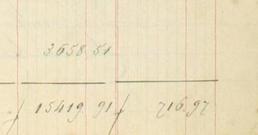 3658.51
15419 91 716.97